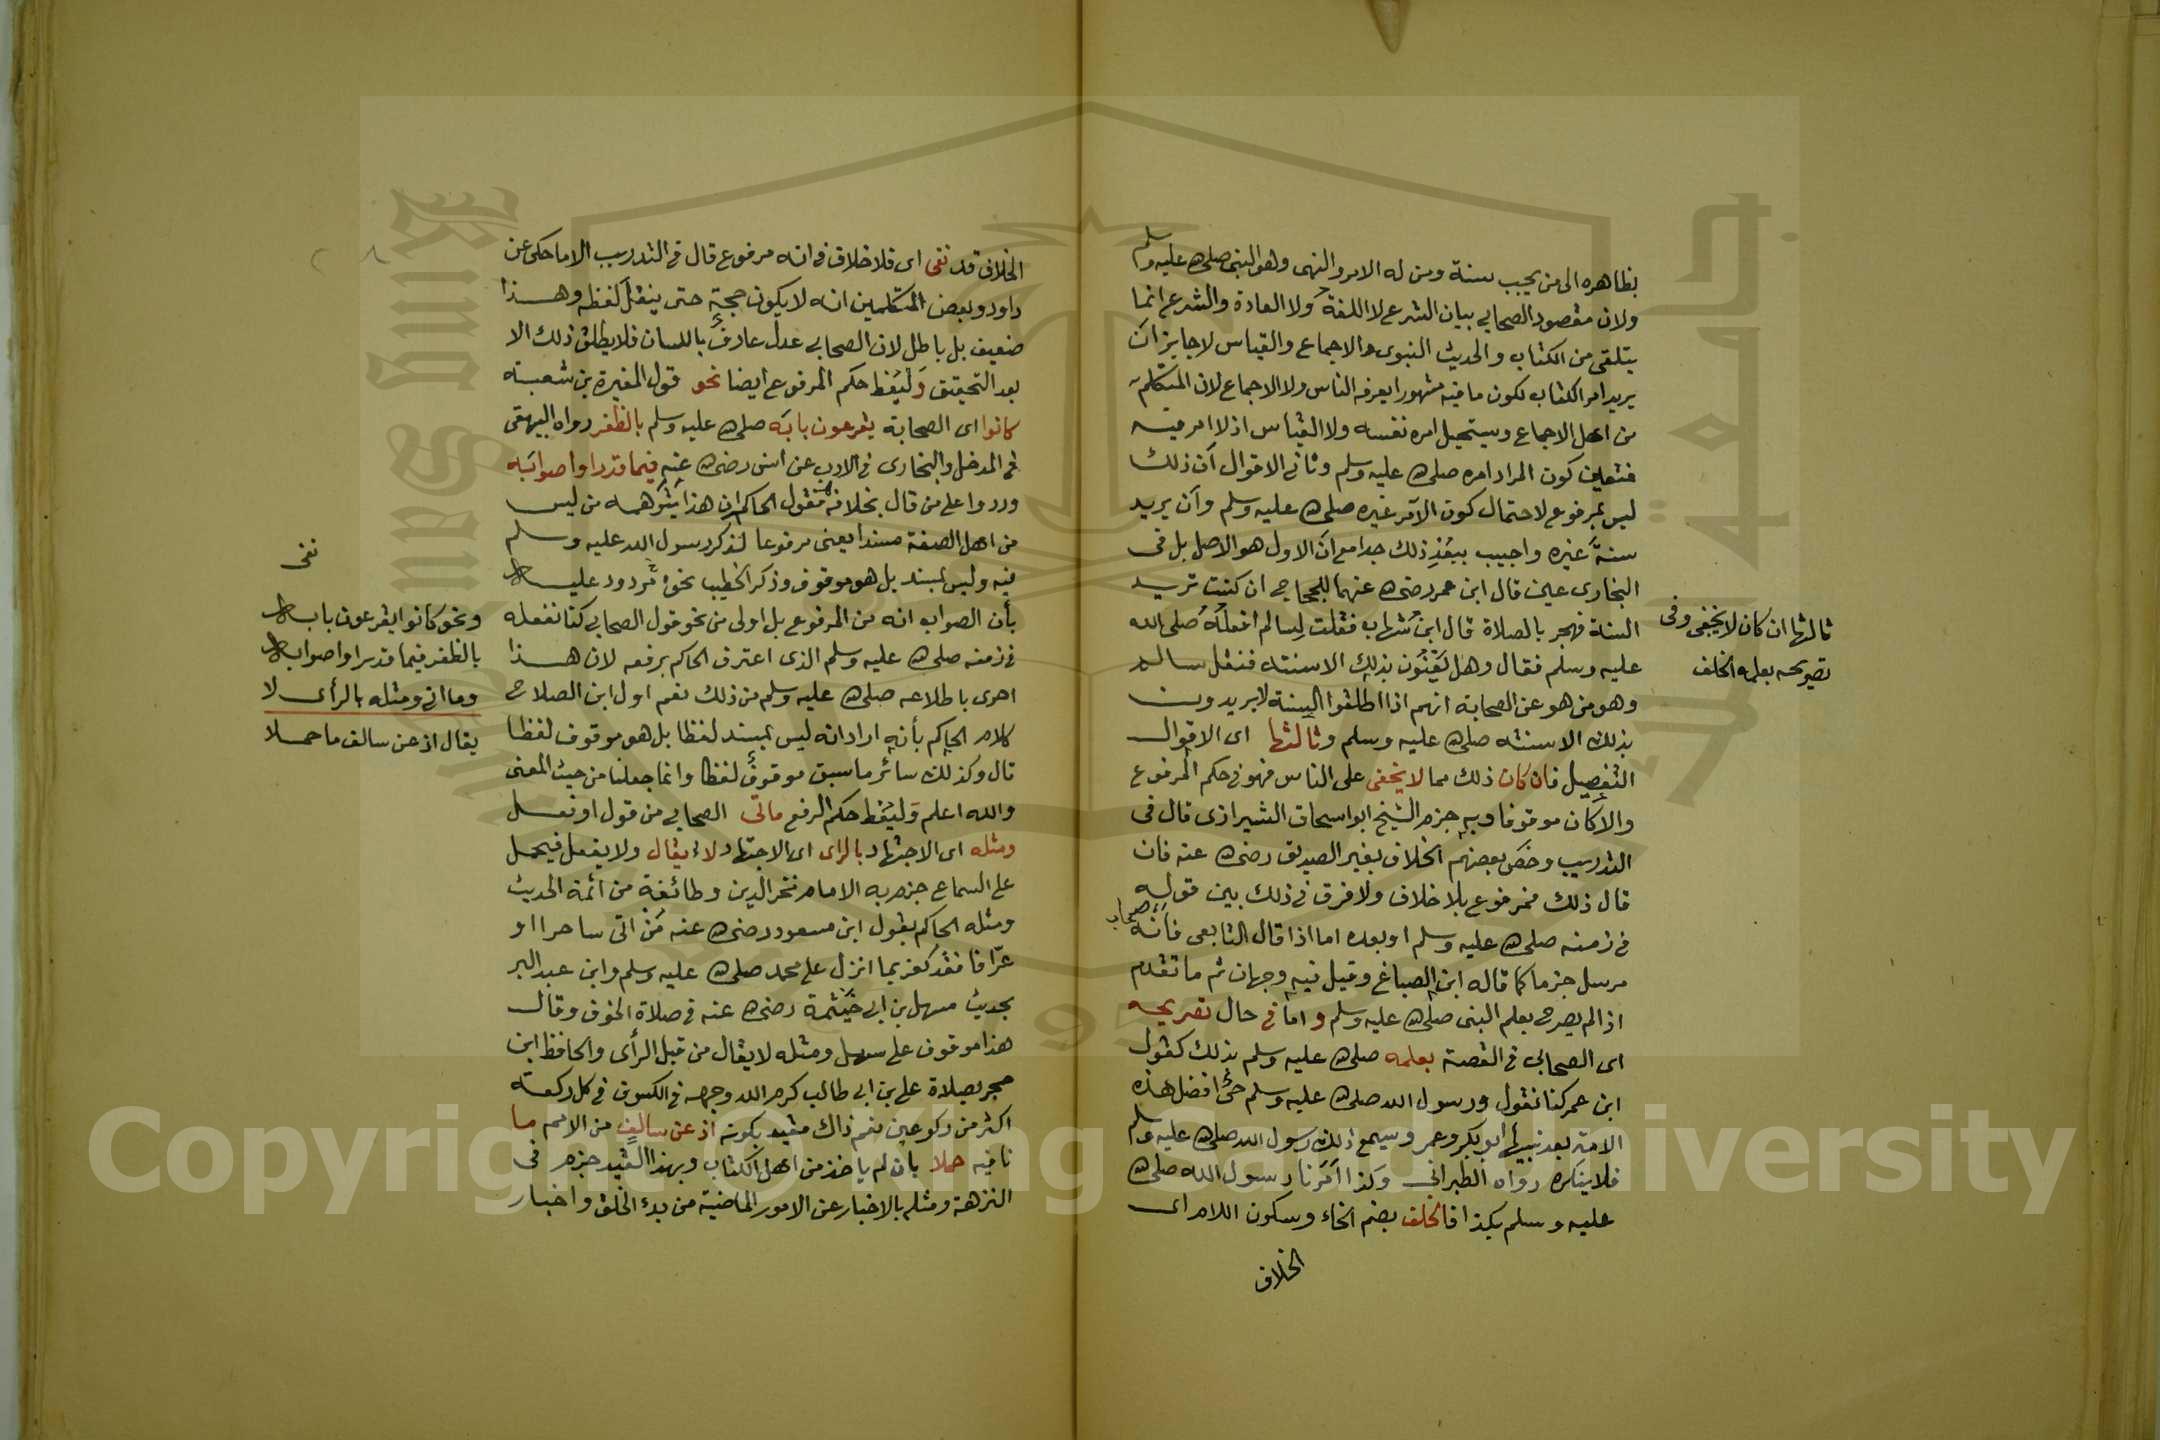 بظاهره الى من يجب سنة ومن له الامر والنهى وهو النبى صلى الله عليه وسلم
ولان مقصود الصحابي بيان الشرع لا اللغة ولا العادة والشرع انما
يتلقى من الكتاب والحديث النبوى والاجماع والقياس لا جايز ان
يريد امر الكتاب لكون ما فيه مشهورا يعرفه الناس ولا الاجماع لان المتكلم
من اهل الاجماع ويستحيل امره نفسه ولا القياس اذ لا امر فيه
فتعين كون المراد امره صلى الله عليه وسلم وثانى الاقوال ان ذلك
ليس بمرفوع لاحتمال كون الآمر غيره صلى الله عليه وسلم وان يريد
سنة غيره واجيب ببعد ذلك جدا مع ان الاول هو الاصل بل فى
البخارى عين قال ابن عمر رضى الله عنهما للحجاج ان كنت تريد
السنة فهجر بالصلاة قال ابن شهاب فقلت لسالم افعله صلى الله
عليه وسلم فقال وهل يعنون بذلك الا سنته فنقل سالم
وهو من هو عن الصحابة انهم اذا اطلقوا السنة لا يريدون
بذلك الا سنته صلى الله عليه وسلم وثالثها اى الاقوال
التفصيل فان كان ذلك مما لا يخفى على الناس فهو فى حكم المرفوع
والا كان موقوفا وبه جزم الشيخ ابو اسحاق الشيرازى قال فى
التدريب وخص بعضهم الخلاف بغير الصديق رضى الله عنه فان
قال ذلك فمرفوع بلا خلاف ولا فرق فى ذلك بين قوله
فى زمنه صلى الله عليه وسلم او بعده اما اذا قال التابعى فانه
مرسل جزما كما قاله ابن الصباغ وقيل فيه وجهان ثم ما تقدم
اذا لم يصرح بعلم النبى صلى الله عليه وسلم واما فى حال تصريحه
اى الصحابى فى القصة بعلمه صلى الله عليه وسلم بذلك كقول
ابن عمر كنا نقول ورسول الله صلى الله عليه وسلم حى افضل هذه
الامة بعد نبيها ابو بكر وعمر ويسمع ذلك رسول الله صلى الله عليه وسلم
فلا ينكره رواه الطبرانى وكذا اقرنا رسول الله صلى الله
عليه وسلم بكذا فالخلف بضم الخاء وسكون اللام اى
الخلاف
ثالثها ان كان لا يخفى وفى
تصريحه بعلمه الخلف
الخلاف قد نفى اى فلا خلاف فى انه مرفوع قال فى التدريب الا ما حكى عن
داود وبعض المتكلمين انه لا يكون حجة حتى ينقل لفظه وهذا
ضعيف بل باطل لان الصحابى عدل عارف باللسان فلا يطلق ذلك الا
بعد التحقق وليعط حكم المرفوع ايضا نحو قول المغيرة بن شعبة
كانوا اى الصحابة يقرعون بابه صلى الله عليه وسلم بالظفر رواه البيهقى
فى المدخل والبخارى فى الادب عن انس رضى الله عنه فيما قد راوا صوابه
وردوا على من قال بخلافه فقول الحاكم ان هذا يتوهمه من ليس
من اهل الصفة مسندا يعنى مرفوعا لذكر رسول الله عليه وسلم
فيه وليس بمسند بل هو موقوف وذكر الخطيب نحوه مردود عليه
بأن الصواب انه من المرفوع بل اولى من نحو قول الصحابى كنا نفعله
فى زمنه صلى الله عليه وسلم الذى اعترف الحاكم برفعه لان هذا
احرى باطلاعه صلى الله عليه وسلم من ذلك نعم اول ابن الصلاح
كلام الحاكم بأنه اراد انه ليس بمسند لفظا بل هو موقوف لفظا
قال وكذلك سائر ما سبق موقوف لفظا وانما جعلنا من حيث المعنى
والله اعلم وليعط حكم الرفع ما اتى الصحابى من قول او فعل
ومثله اى الاجتهاد بالراى اى الاجتهاد لا يقال ولا يفعل فيحمل
على السماع جزم به الامام فخر الدين وطائفة من ائمة الحديث
ومثله الحاكم بقول ابن مسعود رضى الله عنه من اتى ساحرا او
عرافا فقد كفر بما انزل على محمد صلى الله عليه وسلم وابن عبد البر
بحديث سهل بن ابى خيثمة رضى الله عنه فى صلاة الخوف وقال
هذا موقوف على سهل ومثله لا يقال من قبل الرأى والحافظ ابن
حجر بصلاة على بن ابى طالب كرم الله وجهه فى الكسوف فى كل ركعة
اكثر من ركوعين نعم ذاك مقيد بكونه اذ عن سالف من الامم ما
نافيه حملا بان لم ياخذ من اهل الكتاب وبهذا القيد جزم فى
النزهة ومثلم بالاخبار عن الامور الماضية من بدء الخلق واخبار
نفى
ونحو كانوا يقرعون بابه
بالظفر فيما قد راوا صوابه
وما اتى ومثله بالرأى لا
يقال اذ عن سالف ما حملا
Copyright © King Saud University